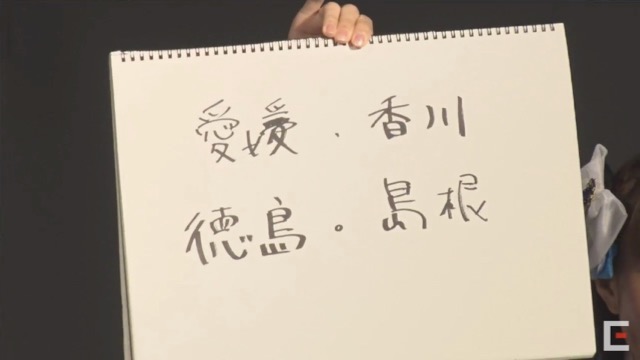 愛媛．香川
徳島。島根